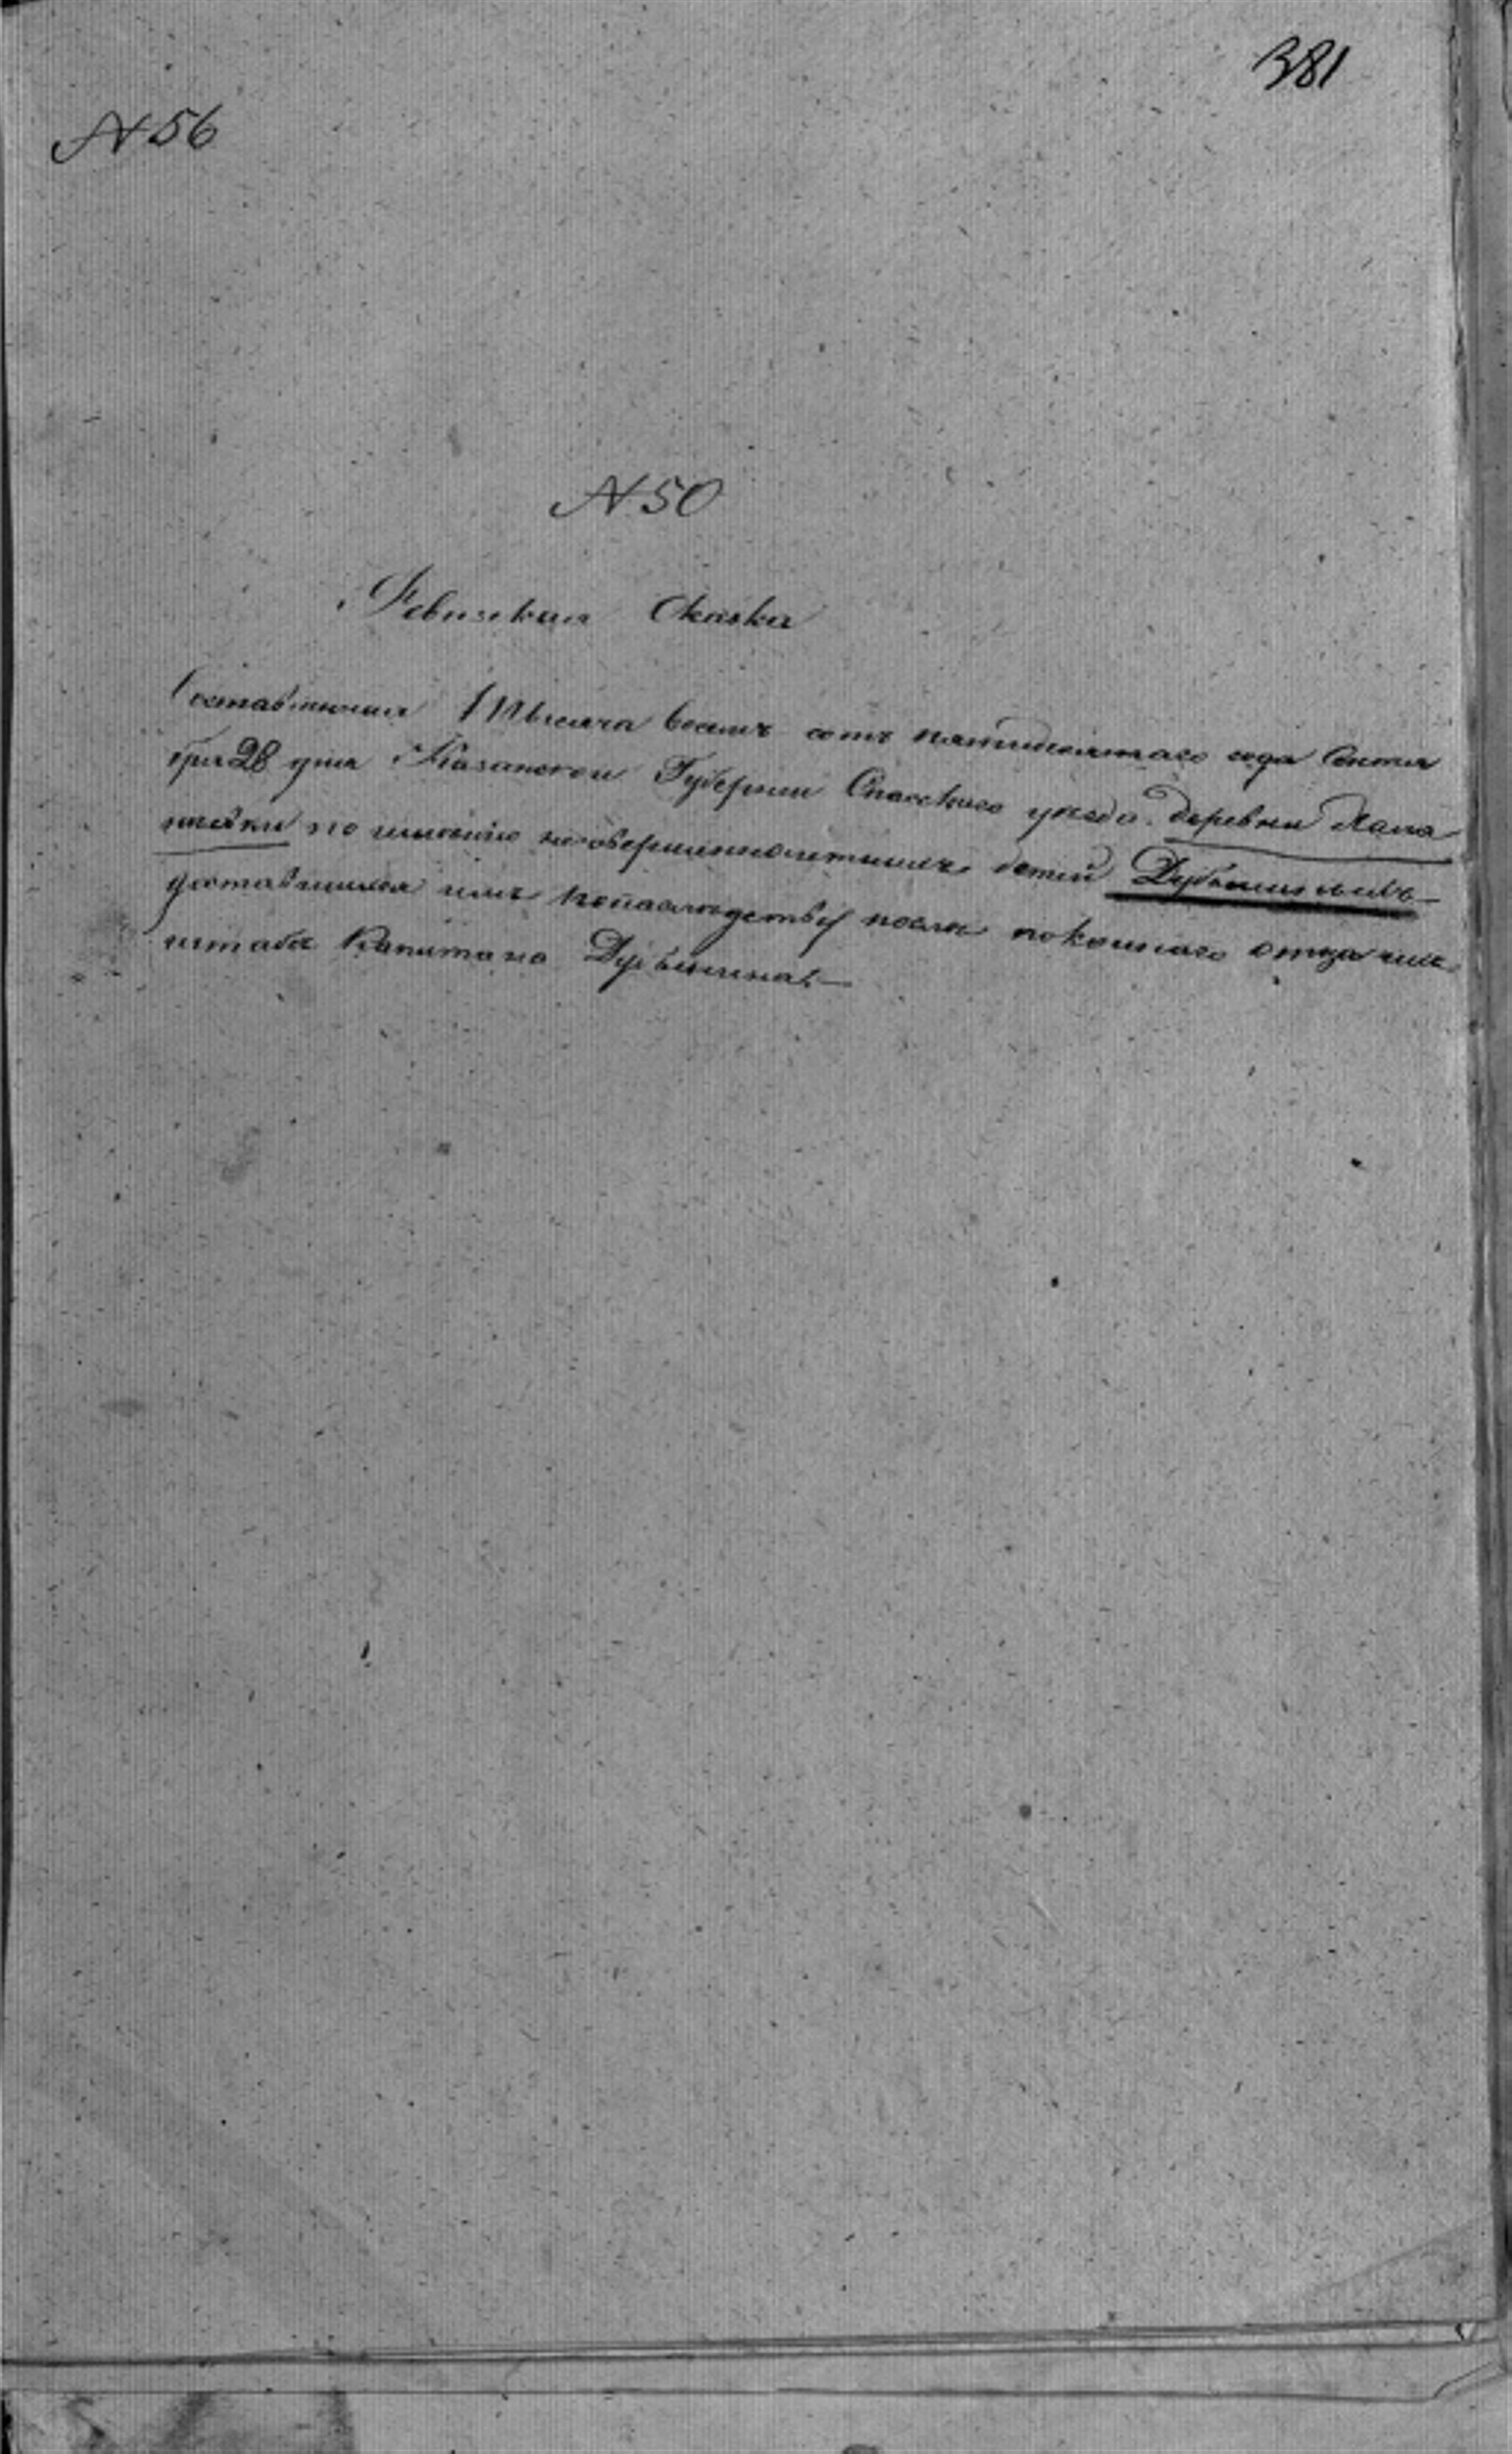 381
№ 56
№ 50
Ревизская Сказка
Составленная Тысяча восемь сотъ пятидесятаго года Сентя
бря 28 дня Казанской Губернии Спасскаго уезда деревни
по имению несовершеннолетнихъ детей
доставшихся имъ по наследству после покойнаго отца ихъ
штабсъ Капитана